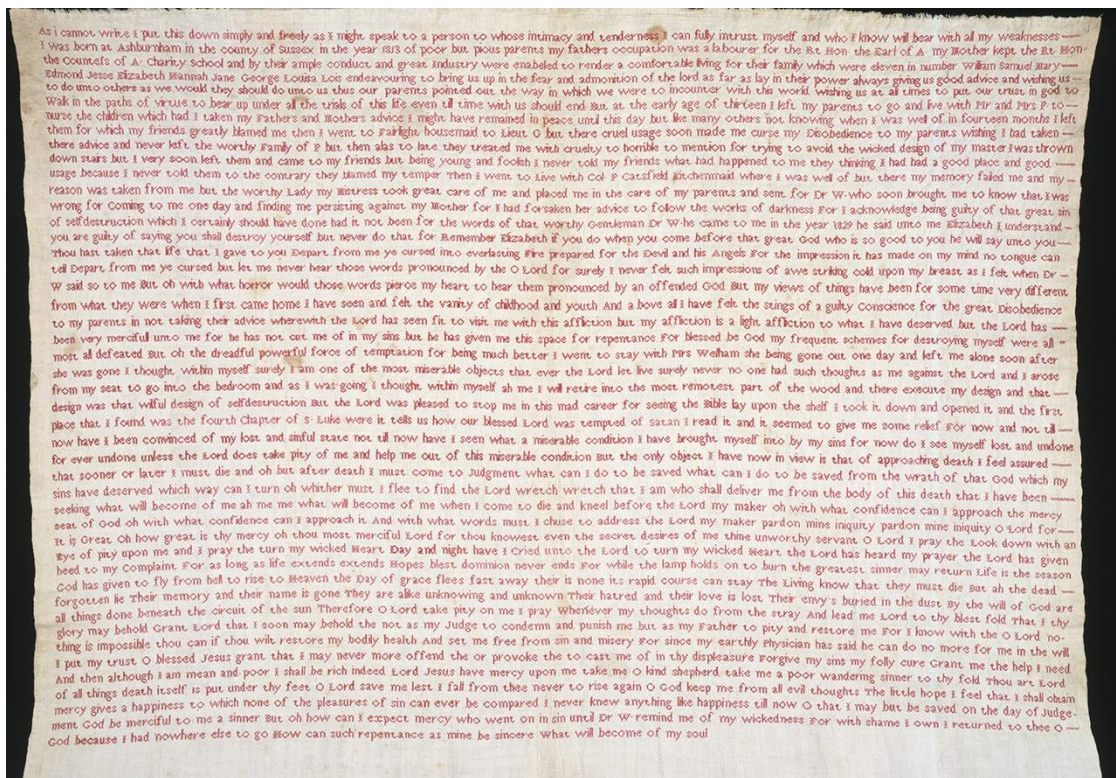 As i cannot write I put this down simply and freely as I might speak to a person to whose intimacy and tenderness I can fully intrust myself and who I know will bear with all my weaknesses
I was born at Ashburnham in the county of Sussex in the year 1813 of poor but pious parents my fathers occupation was a labourer for the Rt Hon the Earl of A my Mother kept the Rt Hon
the Countess of A Charity School and by their ample conduct and great Industry were enabeled to render a comfortable living for their family which were eleven in number William Samuel Mary
Edmond Jesse Elizabeth Hannah Jane George Louisa Lois endeavouring to bring us up in the fear and admonition of the lord as far as lay in their power always giving us good advice and wishing us
to do unto others as we would they should do unto us thus our parents pointed out the way in which we were to incounter with this world wishing us at all times to put our trust in god to
Walk in the paths of virtue to bear up under all the trials of this life even till time with us should end But at the early age of thirteen I left my parents to go and live with Mr and Mrs P to
nurse the children which had I taken my Fathers and Mothers advice I might have remained in peace until this day but like many others not knowing when I was well of in fourteen months I left
them for which my friends greatly blamed me then I went to Fairlight housemaid to Lieut G but there cruel usage soon made me curse my Disobedience to my parents wishing I had taken
there advice and never left the worthy Family of P but then alas to late they treated me with cruelty to horrible to mention for trying to avoid the wicked design of my master I was thrown
down stairs but I very soon left them and came to my friends but being young and foolish I never told my friends what had happened to me they thinking I had had a good place and good
usage because I never told them to the contrary they blamed my temper Then I went to Live with Col P Catsfield kitchenmaid where I was well of but there my memory failed me and my
reason was taken from me but the worthy Lady my Mistress took great care of me and placed me in the care of my parents and sent for Dr W who soon brought me to know that I was
wrong for Coming to me one day and finding me persisting against my Mother for I had forsaken her advice to follow the works of darkness For I acknowledge being guilty of that great sin
of selfdestruction which I certainly should have done had it not been for the words of that worthy Gentleman Dr W he came to me in the year 1829 he said unto me Elizabeth I understand
you are guilty of saying you shall destroy yourself but never do that for Remember Elizabeth if you do when you come before that great God who is so good to you he will say unto you
Thou hast taken that life that I gave to you Depart from me ye cursed into everlasting Fire prepared for the Devil and his Angels For the impression it has made on my mind no tongue can
tell Depart from me ye cursed but let me never hear those words pronounced by the O Lord for surely I never felt such impressions of awe striking cold upon my breast as I felt when Dr
W said so to me But oh with what horror would those words pierce my heart to hear them pronounced by an offended God But my views of things have been for some time very different
from what they were when I first came home I have seen and felt the vanity of childhood and youth And a bove all I have felt the stings of a guilty Conscience for the great Disobedience
to my parents in not taking their advice wherewith the Lord has seen fit to visit me with this affliction but my affliction is a light affliction to what I have deserved but the Lord has
been very merciful unto me for he has not cut me of in my sins but he has given me this space for repentance For blessed be God my frequent schemes for destroying myself were all
most all defeated But oh the dreadful powerful force of temptation for being much better I went to stay with Mrs Welham she being gone out one day and left me alone soon after
she was gone I thought within myself surely I am one of the most miserable objects that ever the Lord let live surely never no one had such thoughts as me against the Lord and I arose
from my seat to go into the bedroom and as I was going I thought within myself ah me I will retire into the most remotest part of the wood and there execute my design and that
design was that wilful design of selfdestruction But the Lord was pleased to stop me in this mad career for seeing the Bible lay upon the shelf I took it down and opened it and the first
place that I found was the fourth Chapter of S. Luke were it tells us how our blessed Lord was tempted of satan I read it and it seemed to give me some relief For now and not till
now have I been convinced of my lost and sinful state not till now have I seen what a miserable condition I have brought myself into by my sins for now do I see myself lost and undone
for ever undone unless the Lord does take pity of me and help me out of this miserable condition But the only object I have now in view is that of approaching death I feel assured
that sooner or later I must die and oh but after death I must come to Judgment what can I do to be saved what can I do to be saved from the wrath of that God which my
sins have deserved which way can I turn oh whither must I flee to find the Lord wretch wretch that I am who shall deliver me from the body of this death that I have been
seeking what will become of me ah me me what will become of me when I come to die and kneel before the Lord my maker oh with what confidence can I approach the mercy
seat of God oh with what confidence can I approach it And with what words must I chuse to address the Lord my maker pardon mine iniquity pardon mine iniquity O Lord for
It is Great Oh how great is thy mercy oh thou most merciful Lord for thou knowest even the secret desires of me thine unworthy servant O Lord I pray the Look down with an
Eye of pity upon me and I pray the turn my wicked Heart Day and night have I Cried unto the Lord to turn my wicked Heart the Lord has heard my prayer the Lord has given
heed to my Complaint For as long as life extends extends Hopes blest dominion never ends For while the lamp holds on to burn the greatest sinner may return Life is the season
God has given to fly from hell to rise to Heaven the Day of grace flees fast away their is none its rapid course can stay The Living know that they must die But ah the dead
forgotten lie Their memory and their name is gone They are alike unknowing and unknown Their hatred and their love is lost Their envy's buried in the dust By the will of God are
all things done beneath the circuit of the sun Therefore O Lord take pity on me I pray Whenever my thoughts do from the stray And lead me Lord to thy blest fold That I thy
glory may behold Grant Lord that I soon may behold the not as my Judge to condemn and punish me but as my Father to pity and restore me For I know with the O Lord no-
thing is impossible thou can if thou wilt restore my bodily health And set me free from sin and misery For since my earthly Physician has said he can do no more for me in the will
I put my trust O blessed Jesus grant that I may never more offend the or provoke the to cast me of in thy displeasure Forgive my sins my folly cure Grant me the help I need
And then although I am mean and poor I shall be rich indeed Lord Jesus have mercy upon me take me O kind shepherd take me a poor wandering sinner to thy fold Thou art Lord
of all things death itself is put under thy feet O Lord save me lest I fall from thee never to rise again O God keep me from all evil thoughts The little hope I feel that I shall obtain
mercy gives a happiness to which none of the pleasures of sin can ever be compared I never knew anything like happiness till now O that I may but be saved on the day of Judge-
ment God be merciful to me a sinner But oh how can I expect mercy who went on in sin until Dr W remind me of my wickedness For with shame I own I returned to thee O
God because I had nowhere else to go How can such repentance as mine be sincere What will become of my soul